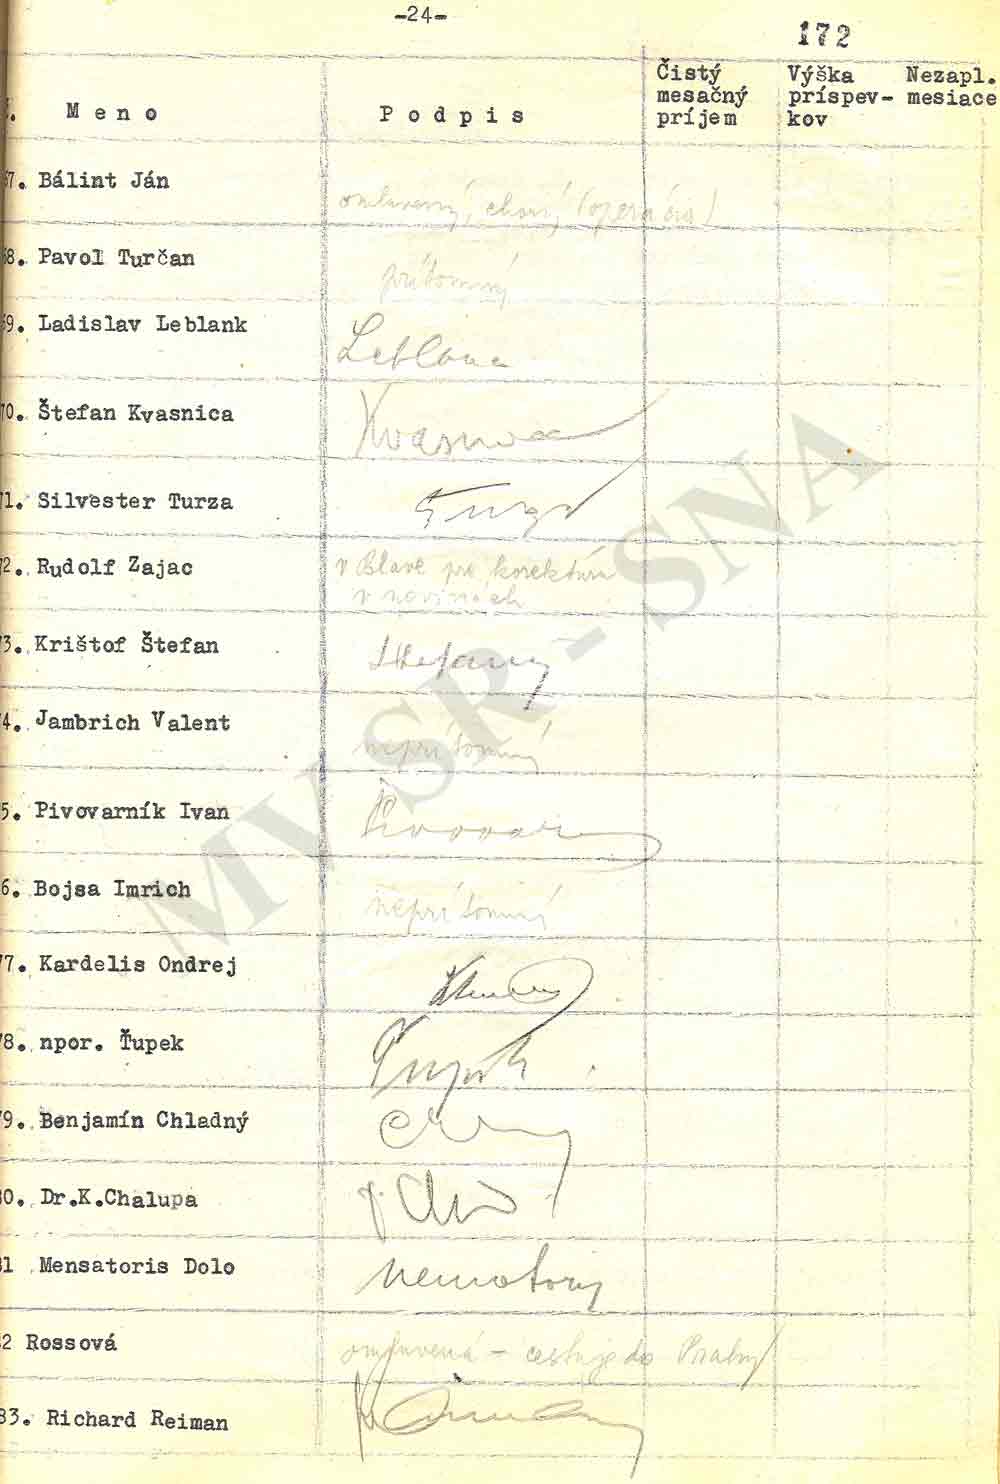 -24-
172
Meno Podpis Čistý mesačný príjem Výška príspev-kov Nezapl. mesiace
7. Bálint Ján chorý (operácia)
8. Pavol Turčan prítomný
9. Ladislav Leblank Leblanc
70. Štefan Kvasnica Kvasnica
71. Silvester Turza
72. Rudolf Zajac v Blave pre korektúru
v novinách
73. Krištof Štefan
74. Jambrich Valent neprítomný
75. Pivovarník Ivan
76. Bojsa Imrich neprítomný
77. Kardelis Ondrej
78. npor. Ťupek Ťupek
79. Benjamín Chladný
80. Dr.K.Chalupa
81 Mensatoris Dolo
82 Rossová omluvená - cestuje do Prahy
83. Richard Reiman
MVSR - SNA